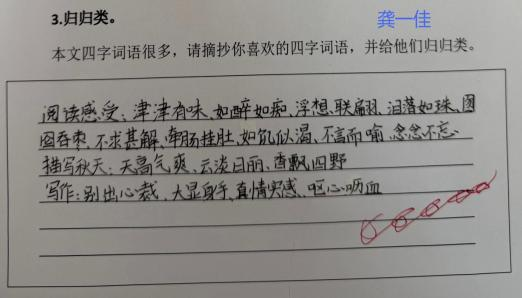 龚一佳
3.归归类。
本文四字词语很多，请摘抄你喜欢的四字词语，并给他们归归类。
阅读感受：津津有味、如醉如痴、浮想联翩、泪落如珠、囫
囵吞枣、不求甚解、牵肠挂肚、如饥似渴、不言而喻、念念不忘
描写秋天：天高气爽、云淡日丽、香飘四野
写作：别出心裁、大显身手、真情实感、呕心呖血